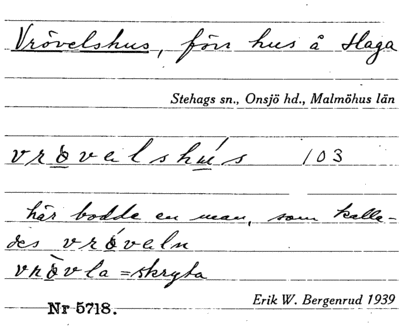 Vrövelshus, förr hus å Haga
Stehags sn., Onsjö hd., Malmöhus län
vrövalshús 103
här bodde en man, som kalla-
des vrövaln
vròvla = skryta
Nr 5718. Erik W. Bergenrud 1939